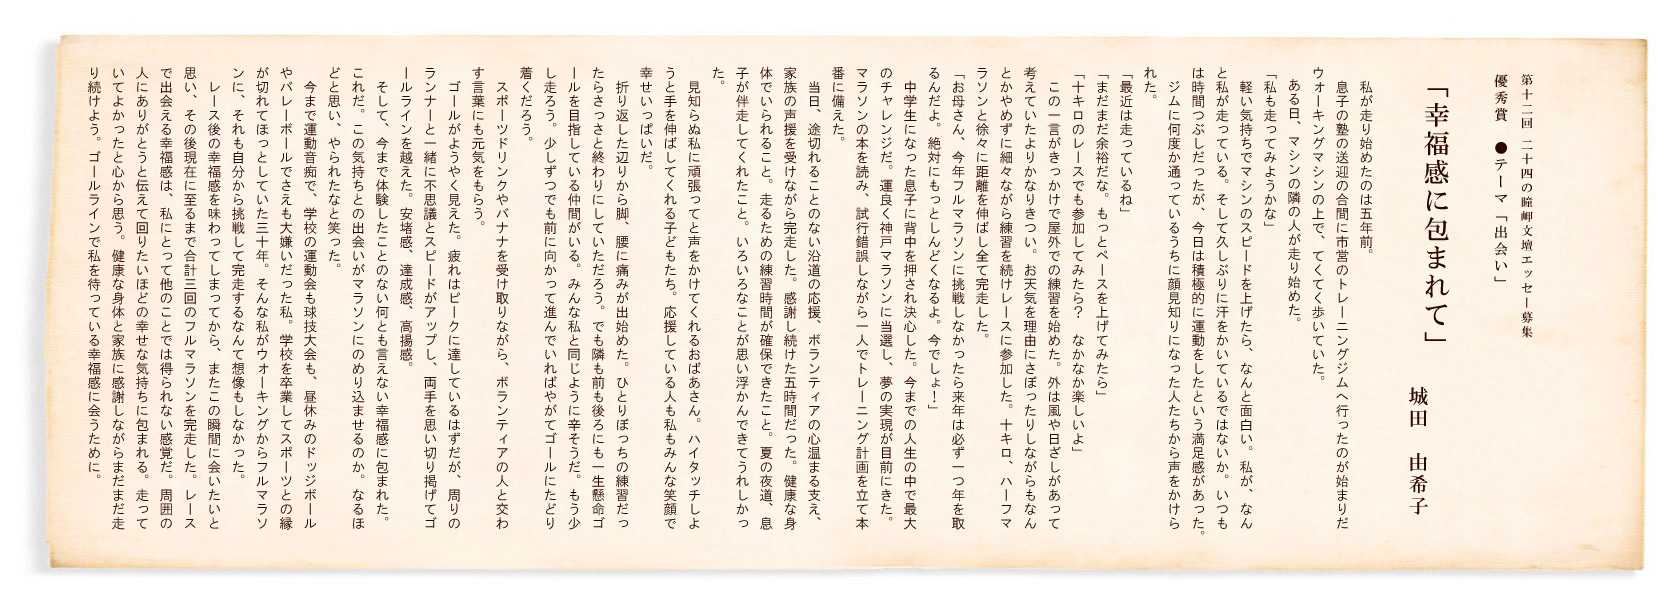 第十二回 二十四の瞳岬文壇エッセー募集
優秀賞 ●テーマ「出会い」
「幸福感に包まれて」 城田 由希子
私が走り始めたのは五年前。
息子の塾の送迎の合間に市営のトレーニングジムへ行ったのが始まりだ
ウォーキングマシンの上で、てくてく歩いていた。
ある日、マシンの隣の人が走り始めた。
「私も走ってみようかな」
軽い気持ちでマシンのスピードを上げたら、なんと面白い。私が、なん
と私が走っている。そして久しぶりに汗をかいているではないか。いつも
は時間つぶしだったが、今日は積極的に運動をしたという満足感があった。
ジムに何度か通っているうちに顔見知りになった人たちから声をかけら
れた。
「最近は走っているね」
「まだまだ余裕だな。もっとペースを上げてみたら」
「十キロのレースでも参加してみたら？ なかなか楽しいよ」
この一言がきっかけで屋外での練習を始めた。外は風や日ざしがあって
考えていたよりかなりきつい。お天気を理由にさぼったりしながらもなん
とかやめずに細々ながら練習を続けレースに参加した。十キロ、ハーフマ
ラソンと徐々に距離を伸ばし全て完走した。
「お母さん、今年フルマラソンに挑戦しなかったら来年は必ず一つ年を取
るんだよ。絶対にもっとしんどくなるよ。今でしょ！」
中学生になった息子に背中を押され決心した。今までの人生の中で最大
のチャレンジだ。運良く神戸マラソンに当選し、夢の実現が目前にきた。
マラソンの本を読み、試行錯誤しながら一人でトレーニング計画を立て本
番に備えた。
当日、途切れることのない沿道の応援、ボランティアの心温まる支え、
家族の声援を受けながら完走した。感謝し続けた五時間だった。健康な身
体でいられること。走るための練習時間が確保できたこと。夏の夜道、息
子が伴走してくれたこと。いろいろなことが思い浮かんできてうれしかっ
た。
見知らぬ私に頑張ってと声をかけてくれるおばあさん。ハイタッチしよ
うと手を伸ばしてくれる子どもたち。応援している人も私もみんな笑顔で
幸せいっぱいだ。
折り返した辺りから脚、腰に痛みが出始めた。ひとりぼっちの練習だっ
たらさっさと終わりにしていただろう。でも隣も前も後ろにも一生懸命ゴ
ールを目指している仲間がいる。みんな私と同じように辛そうだ。もう少
し走ろう。少しずつでも前に向かって進んでいればやがてゴールにたどり
着くだろう。
スポーツドリンクやバナナを受け取りながら、ボランティアの人と交わ
す言葉にも元気をもらう。
ゴールがようやく見えた。疲れはピークに達しているはずだが、周りの
ランナーと一緒に不思議とスピードがアップし、両手を思い切り掲げてゴ
ールラインを越えた。安堵感、達成感、高揚感。
そして、今まで体験したことのない何とも言えない幸福感に包まれた。
これだ。この気持ちとの出会いがマラソンにのめり込ませるのか。なるほ
どと思い、やられたなと笑った。
今まで運動音痴で、学校の運動会も球技大会も、昼休みのドッジボール
やバレーボールでさえも大嫌いだった私。学校を卒業してスポーツとの縁
が切れてほっとしていた三十年。そんな私がウォーキングからフルマラソ
ンに、それも自分から挑戦して完走するなんて想像もしなかった。
レース後の幸福感を味わってしまってから、またこの瞬間に会いたいと
思い、その後現在に至るまで合計三回のフルマラソンを完走した。レース
で出会える幸福感は、私にとって他のことでは得られない感覚だ。周囲の
人にありがとうと伝えて回りたいほどの幸せな気持ちに包まれる。走って
いてよかったと心から思う。健康な身体と家族に感謝しながらまだまだ走
り続けよう。ゴールラインで私を待っている幸福感に会うために。